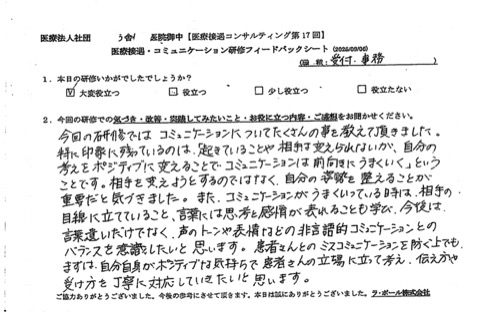 医療法人社団 医院御中【医療接遇コンサルティング第17回】
医療接遇・コミュニケーション研修フィードバックシート (2026/09/06)
(職種:受付・事務)
1.本日の研修いかがでしたでしょうか？
☑ 大変役立つ □ 役立つ □ 少し役立つ □ 役立たない
2.今回の研修での気づき・改善・実践してみたいこと・お役に立つ内容・ご感想をお聞かせください。
今回の研修では コミュニケーションについてたくさんの事を教えて頂きました。
特に印象に残っているのは、「起きていることや 相手は変えられないが、自分の
考えをポジティブに変えることでコミュニケーションは前向きにうまくいく」という
ことです。相手を変えようとするのではなく、自分の姿勢を整えることが
重要だと気づきました。また、コミュニケーションがうまくいっている時は、相手の
目線に立てていること、言葉には思考と感情が表れることも学び、今後は、
言葉遣いだけでなく、声のトーンや表情などの非言語的コミュニケーションとの
バランスを意識したいと思います。患者さんとのミスコミュニケーションを防ぐ上でも、
まずは、自分自身がポジティブな気持ちで患者さんの立場に立って考え、伝え方や
受け方を丁寧に対応していきたいと思います。
ご協力ありがとうございました。今後の参考にさせて頂きます。本日は誠にありがとうございました。 ラ・ポール株式会社